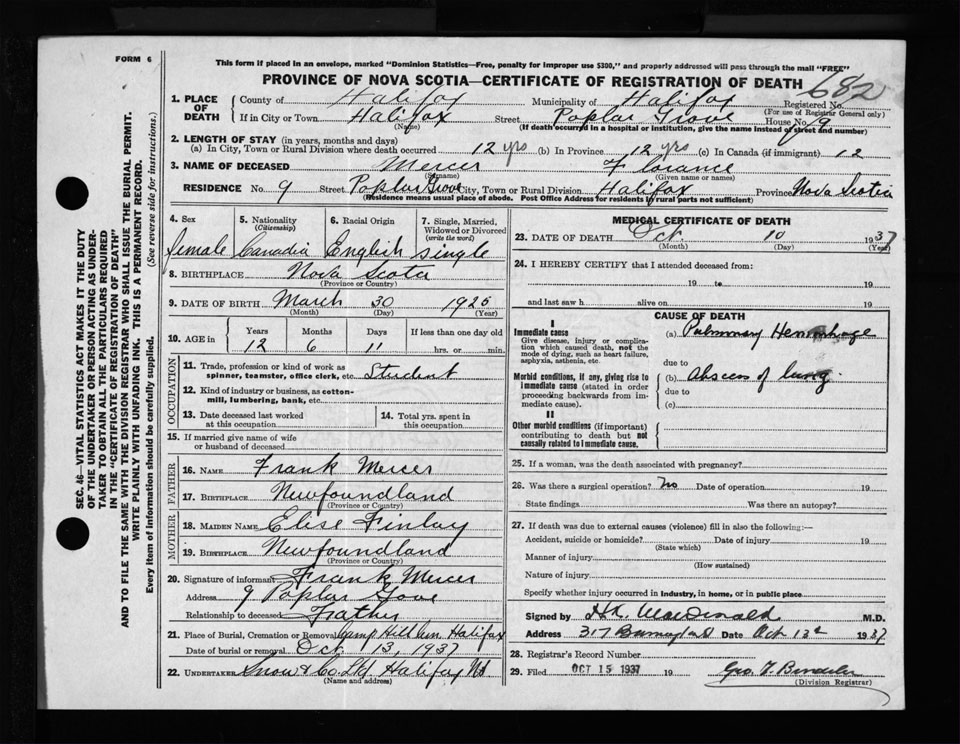 FORM 6
This form if placed in an envelope, marked "Dominion Statistics—Free, penalty for improper use $300," and properly addressed will pass through the mail "FREE"
PROVINCE OF NOVA SCOTIA—CERTIFICATE OF REGISTRATION OF DEATH
682
1. PLACE OF DEATH County of Halifax Municipality of Halifax Registered No.
(For use of Registrar General only)
If in City or Town Halifax Street Poplar Grove House No 9
(Name) (If death occurred in a hospital or institution, give the name instead of street and number)
2. LENGTH OF STAY (in years, months and days)
(a) In City, Town or Rural Division where death occurred 12 yrs (b) In Province 12 yrs (c) In Canada (if immigrant) 12
3. NAME OF DECEASED Mercer Florance
(Surname) (Given name or names)
RESIDENCE No. 9 Street Poplar Grove City, Town or Rural Division Halifax Province Nova Scotia
(Residence means usual place of abode. Post Office Address for residents in rural parts not sufficient)
4. Sex
female
5. Nationality
(Citizenship)
Canadia
6. Racial Origin
English
7. Single, Married, Widowed or Divorced
(write the word)
single
8. BIRTHPLACE Nova Scotia
(Province or Country)
9. DATE OF BIRTH March 30 1925
(Month) (Day) (Year)
10. AGE in Years Months Days If less than one day old
12 6 11 hrs. or min.
OCCUPATION
11. Trade, profession or kind of work as
spinner, teamster, office clerk, etc. Student
12. Kind of industry or business, as cotton-
mill, lumbering, bank, etc.
13. Date deceased last worked
at this occupation
14. Total yrs. spent in
this occupation
15. If married give name of wife
or husband of deceased
FATHER
16. NAME Frank Mercer
17. BIRTHPLACE Newfoundland
(Province or Country)
MOTHER
18. MAIDEN NAME Elise Finlay
19. BIRTHPLACE Newfoundland
(Province or Country)
20. Signature of informant Frank Mercer
Address 9 Poplar Gove
Relationship to deceased Father
21. Place of Burial, Cremation or Removal Camp Hill Cem. Halifax
Date of burial or removal Oct. 13, 1937
22. UNDERTAKER Snow & Co. Ltd Halifax NS
(Name and address)
MEDICAL CERTIFICATE OF DEATH
23. DATE OF DEATH Oct. 10 1937
(Month) (Day) (Year)
24. I HEREBY CERTIFY that I attended deceased from:
19 to 19
and last saw h alive on 19
CAUSE OF DEATH
I
Immediate cause
Give disease, injury or complication which caused death, not the mode of dying, such as heart failure, asphyxia, asthenia, etc.
(a) Pulmonary Hemorrhage
due to
Morbid conditions, if any, giving rise to immediate cause (stated in order proceeding backwards from immediate cause).
(b) Abscess of lung
due to
(c)
II
Other morbid conditions (if important) contributing to death but not causally related to immediate cause.
25. If a woman, was the death associated with pregnancy?
26. Was there a surgical operation? No Date of operation 19
State findings Was there an autopsy?
27. If death was due to external causes (violence) fill in also the following:—
Accident, suicide or homicide? Date of injury 19
(State which)
Manner of injury
(How sustained)
Nature of injury
Specify whether injury occurred in industry, in home, or in public place
Signed by MacDonald M.D.
Address 317 Date Oct 12th 1937
28. Registrar's Record Number
29. Filed OCT 15 1937 19 Geo. T.
(Division Registrar)
SEC. 46—VITAL STATISTICS ACT MAKES IT THE DUTY
OF THE UNDERTAKER OR PERSON ACTING AS UNDER-
TAKER TO OBTAIN ALL THE PARTICULARS REQUIRED
IN THE "CERTIFICATE OF REGISTRATION OF DEATH"
AND TO FILE THE SAME WITH THE DIVISION REGISTRAR WHO SHALL ISSUE THE BURIAL PERMIT.
WRITE PLAINLY WITH UNFADING INK. THIS IS A PERMANENT RECORD.
Every item of information should be carefully supplied. (See reverse side for instructions.)